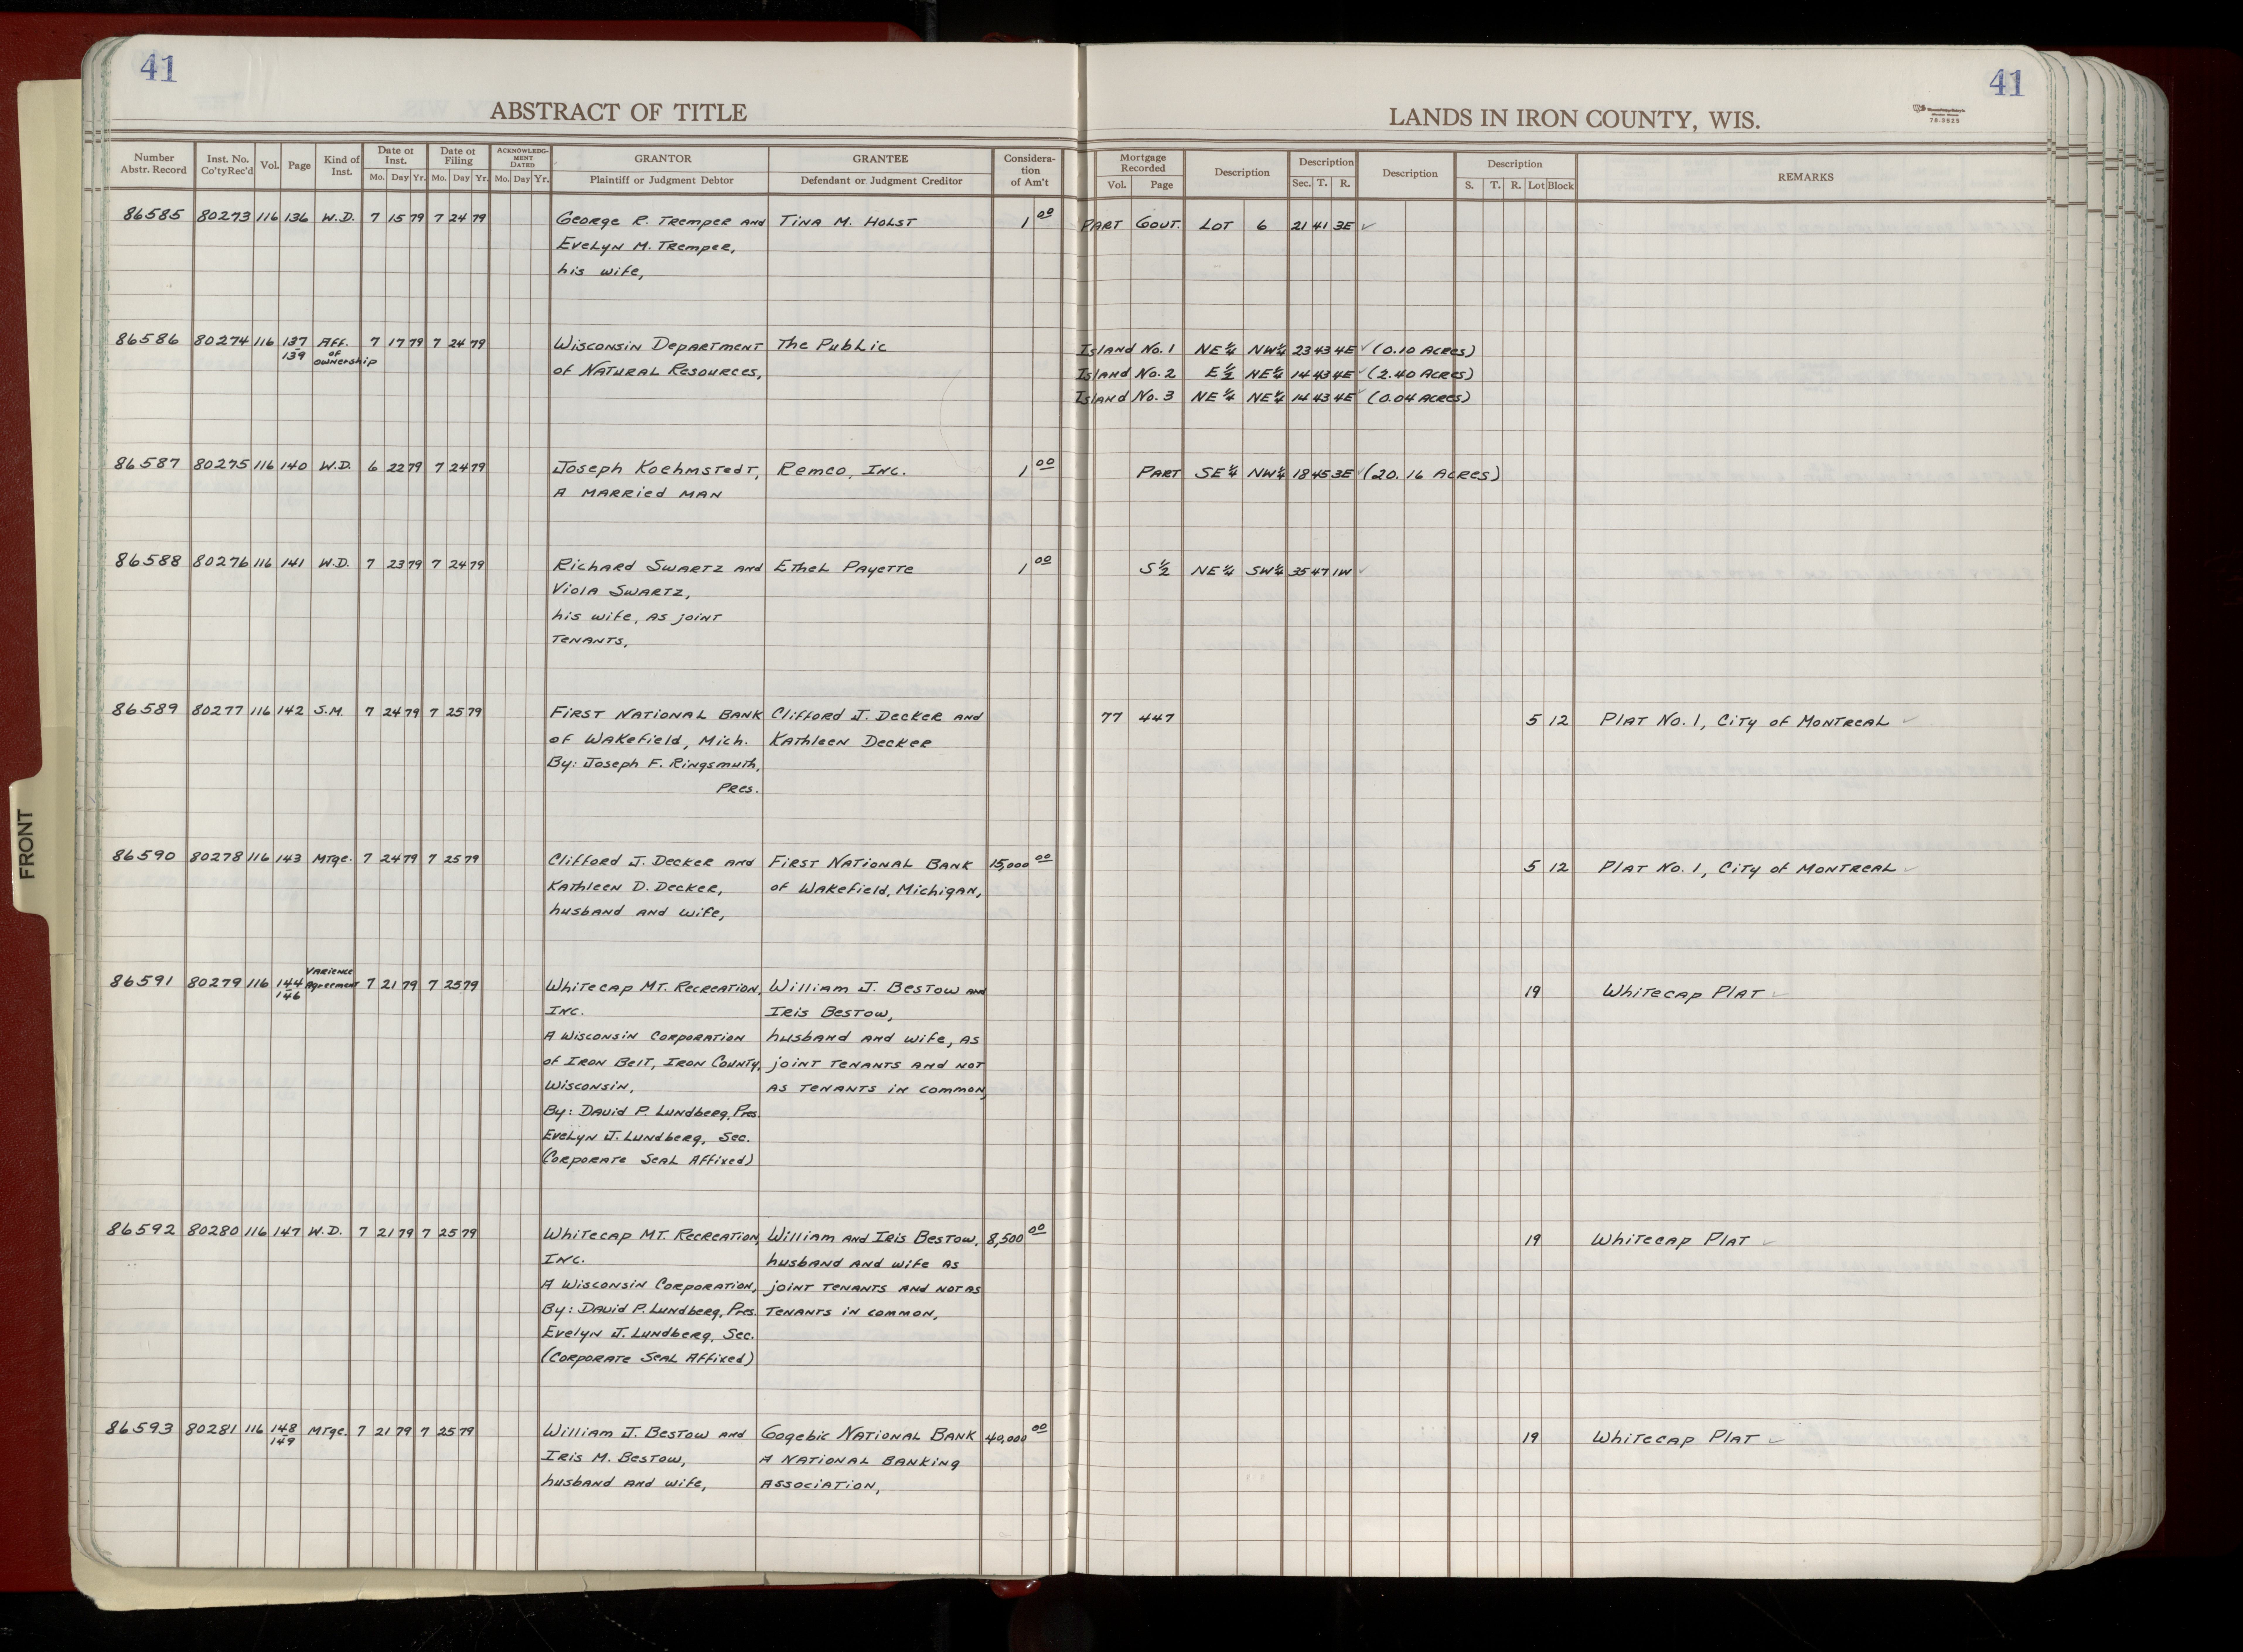 41
41
ABSTRACT OF TITLE
LANDS IN IRON COUNTY, WIS.
78-3523
FRONT
Number Abstr. Record | Inst. No. Co'ty Rec'd | Vol. | Page | Kind of Inst. | Date of Inst. Mo. Day Yr. | Date of Filing Mo. Day Yr. | ACKNOWLEDGMENT DATED Mo. Day Yr. | GRANTOR Plaintiff or Judgment Debtor | GRANTEE Defendant or Judgment Creditor | Consideration of Am't | Mortgage Recorded Vol. Page | Description | Description Sec. T. R. | Description | Description S. T. R. Lot Block | REMARKS
86585 80273 116 136 W.D. 7 15 79 7 24 79 George R. Tremper and Tina M. Holst 1 00 Part Gout. Lot 6 21 41 3E ✓
Evelyn M. Tremper,
his wife,
86586 80274 116 137 139 Aff. of ownership 7 17 79 7 24 79 Wisconsin Department The Public Island No. 1 NE¼ NW¼ 23 43 4E ✓ (0.10 Acres)
of Natural Resources, Island No. 2 E½ NE¼ 14 43 4E ✓ (2.40 Acres)
Island No. 3 NE¼ NE¼ 14 43 4E ✓ (0.04 Acres)
86587 80275 116 140 W.D. 6 22 79 7 24 79 Joseph Koehmstedt, Remco, Inc. 1 00 Part SE¼ NW¼ 18 45 3E ✓ (20.16 Acres)
A married man
86588 80276 116 141 W.D. 7 23 79 7 24 79 Richard Swartz and Ethel Payette 1 00 S½ NE¼ SW¼ 35 47 1W ✓
Viola Swartz,
his wife, as joint
tenants,
86589 80277 116 142 S.M. 7 24 79 7 25 79 First National Bank Clifford J. Decker and 77 447 5 12 Plat No. 1, City of Montreal ✓
of Wakefield, Mich. Kathleen Decker
By: Joseph F. Ringsmuth,
Pres.
86590 80278 116 143 Mtge. 7 24 79 7 25 79 Clifford J. Decker and First National Bank 15,000 00 5 12 Plat No. 1, City of Montreal ✓
Kathleen D. Decker, of Wakefield, Michigan,
husband and wife,
86591 80279 116 144 146 Varience Agreement 7 21 79 7 25 79 Whitecap Mt. Recreation, William J. Bestow and 19 Whitecap Plat ✓
Inc. Iris Bestow,
A Wisconsin Corporation husband and wife, as
of Iron Belt, Iron County, joint tenants and not
Wisconsin, as tenants in common,
By: David P. Lundberg, Pres.
Evelyn J. Lundberg, Sec.
(Corporate Seal Affixed)
86592 80280 116 147 W.D. 7 21 79 7 25 79 Whitecap Mt. Recreation, William and Iris Bestow, 8,500 00 19 Whitecap Plat ✓
Inc. husband and wife as
A Wisconsin Corporation, joint tenants and not as
By: David P. Lundberg, Pres. tenants in common,
Evelyn J. Lundberg, Sec.
(Corporate Seal Affixed)
86593 80281 116 148 149 Mtge. 7 21 79 7 25 79 William J. Bestow and Gogebic National Bank 40,000 00 19 Whitecap Plat ✓
Iris M. Bestow, A National Banking
husband and wife, Association,